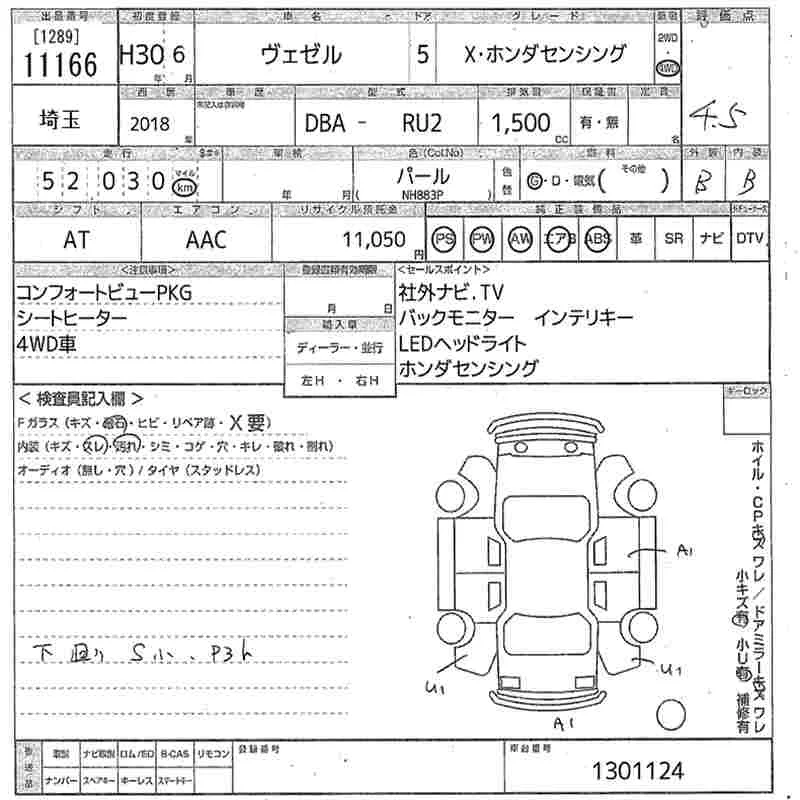 出品番号 初度登録 車名 ドア グレード 駆動 評価点
[1289]
11166 H30年 6月 ヴェゼル 5 X・ホンダセンシング 2WD 4WD
4.5
西暦 車歴 型式 排気量 保証書 定員
埼玉 2018年 DBA - RU2 1,500cc 有・無 名
走行 車検 色(Col.No) 燃料 外装 内装
52030 マイル km 年 月 パール (NH883P) 色替 G・D・電気( その他 ) B B
シフト エアコン リサイクル預託金 純正装備品
AT AAC 11,050円 PS PW AW エアB ABS 革 SR ナビ DTV
<注意事項> 登録書類有効期限 <セールスポイント>
コンフォートビューPKG 月 日 社外ナビ.TV
シートヒーター 輸入車 バックモニター インテリキー
4WD車 ディーラー・並行 LEDヘッドライト
左H ・ 右H ホンダセンシング
< 検査員記入欄 > キーロック
Fガラス(キズ・飛石・ヒビ・リペア跡・X要)
内装(キズ・スレ・汚れ・シミ・コゲ・穴・キレ・破れ・割れ)
オーディオ(無し・穴)/タイヤ(スタッドレス)
A1
下廻り S小、P3h
U1 U1
A1
ホイル・CPキズ ワレ/ドアミラーキズ ワレ
小キズ有 小U有 補修有
後送品 取説 ナビ取説 ロム/SD B-CAS リモコン 登録番号 車台番号
ナンバー スペアキー ホーレス スマートキー 1301124